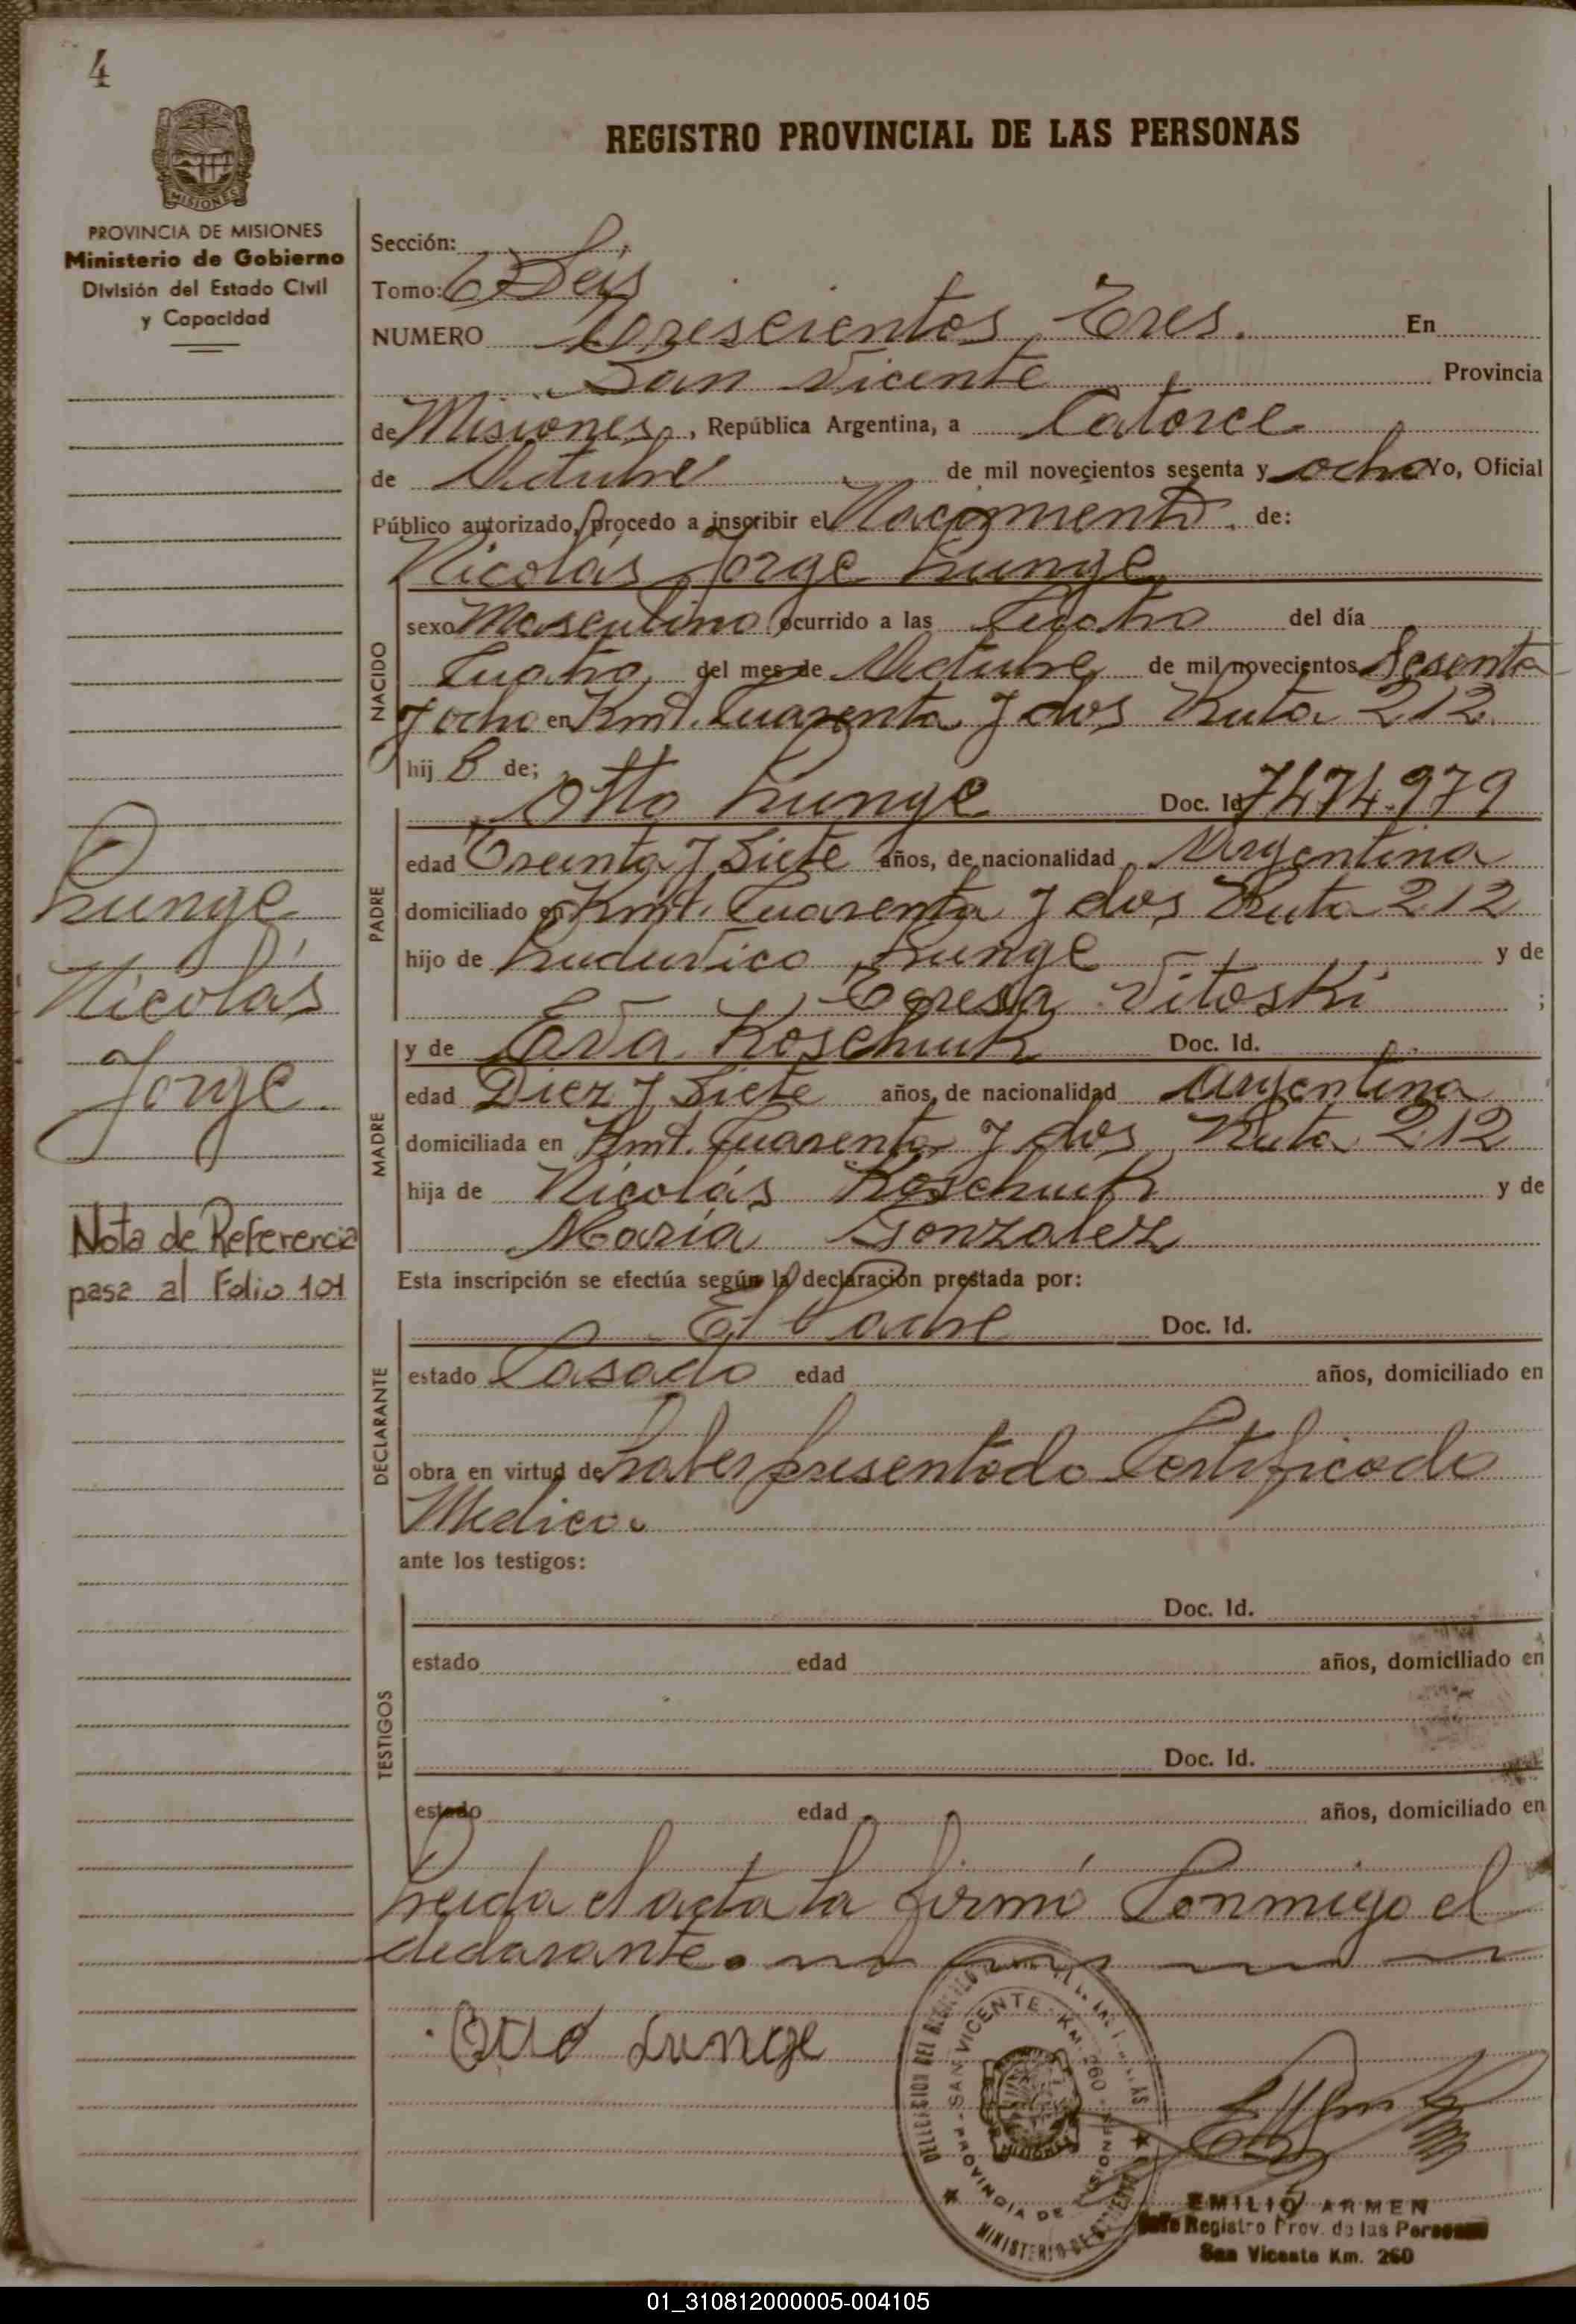 4
REGISTRO PROVINCIAL DE LAS PERSONAS
PROVINCIA DE MISIONES
Ministerio de Gobierno
División del Estado Civil
y Capacidad
Sección:
Tomo: 6 Seis
NUMERO Trescientos Tres. En
San Vicente Provincia
de Misiones, República Argentina, a Catorce
de Octubre de mil novecientos sesenta y ocho Yo, Oficial
Público autorizado, procedo a inscribir el Nacimiento de:
Nicolás Jorge Lunge
NACIDO
sexo Masculino ocurrido a las Cuatro del día
Cuatro del mes de Octubre de mil novecientos Sesenta
y ocho en Kmt. Cuarenta y dos Ruta 212
hij o de;
PADRE
Otto Lunge Doc. Id 7474.979
edad Treinta y Siete años, de nacionalidad Argentina
domiciliado en Kmt. Cuarenta y dos Ruta 212
hijo de Ludovico Lunge y de
Teresa Vitoski ;
MADRE
y de Eva Koschuk Doc. Id.
edad Diez y Siete años, de nacionalidad Argentina
domiciliada en Kmt. Cuarenta y dos Ruta 212
hija de Nicolás Koschuk y de
María Gonzalez
Lunge
Nicolás
Jorge
Nota de Referencia
pasa al Folio 101
Esta inscripción se efectúa según la declaración prestada por:
DECLARANTE
El Padre Doc. Id.
estado Casado edad años, domiciliado en
obra en virtud de haber presentado Certificado
Medico.
ante los testigos:
TESTIGOS
Doc. Id.
estado edad años, domiciliado en
Doc. Id.
estado edad años, domiciliado en
Leida el acta la firmó Conmigo el
declarante.
Otto Lunge
SAN VICENTE - KM. 260
PROVINCIA DE MISIONES
MINISTERIO DE GOBIERNO
EMILIO ARMEN
Jefe Registro Prov. de las Personas
San Vicente Km. 260
01_310812000005-004105